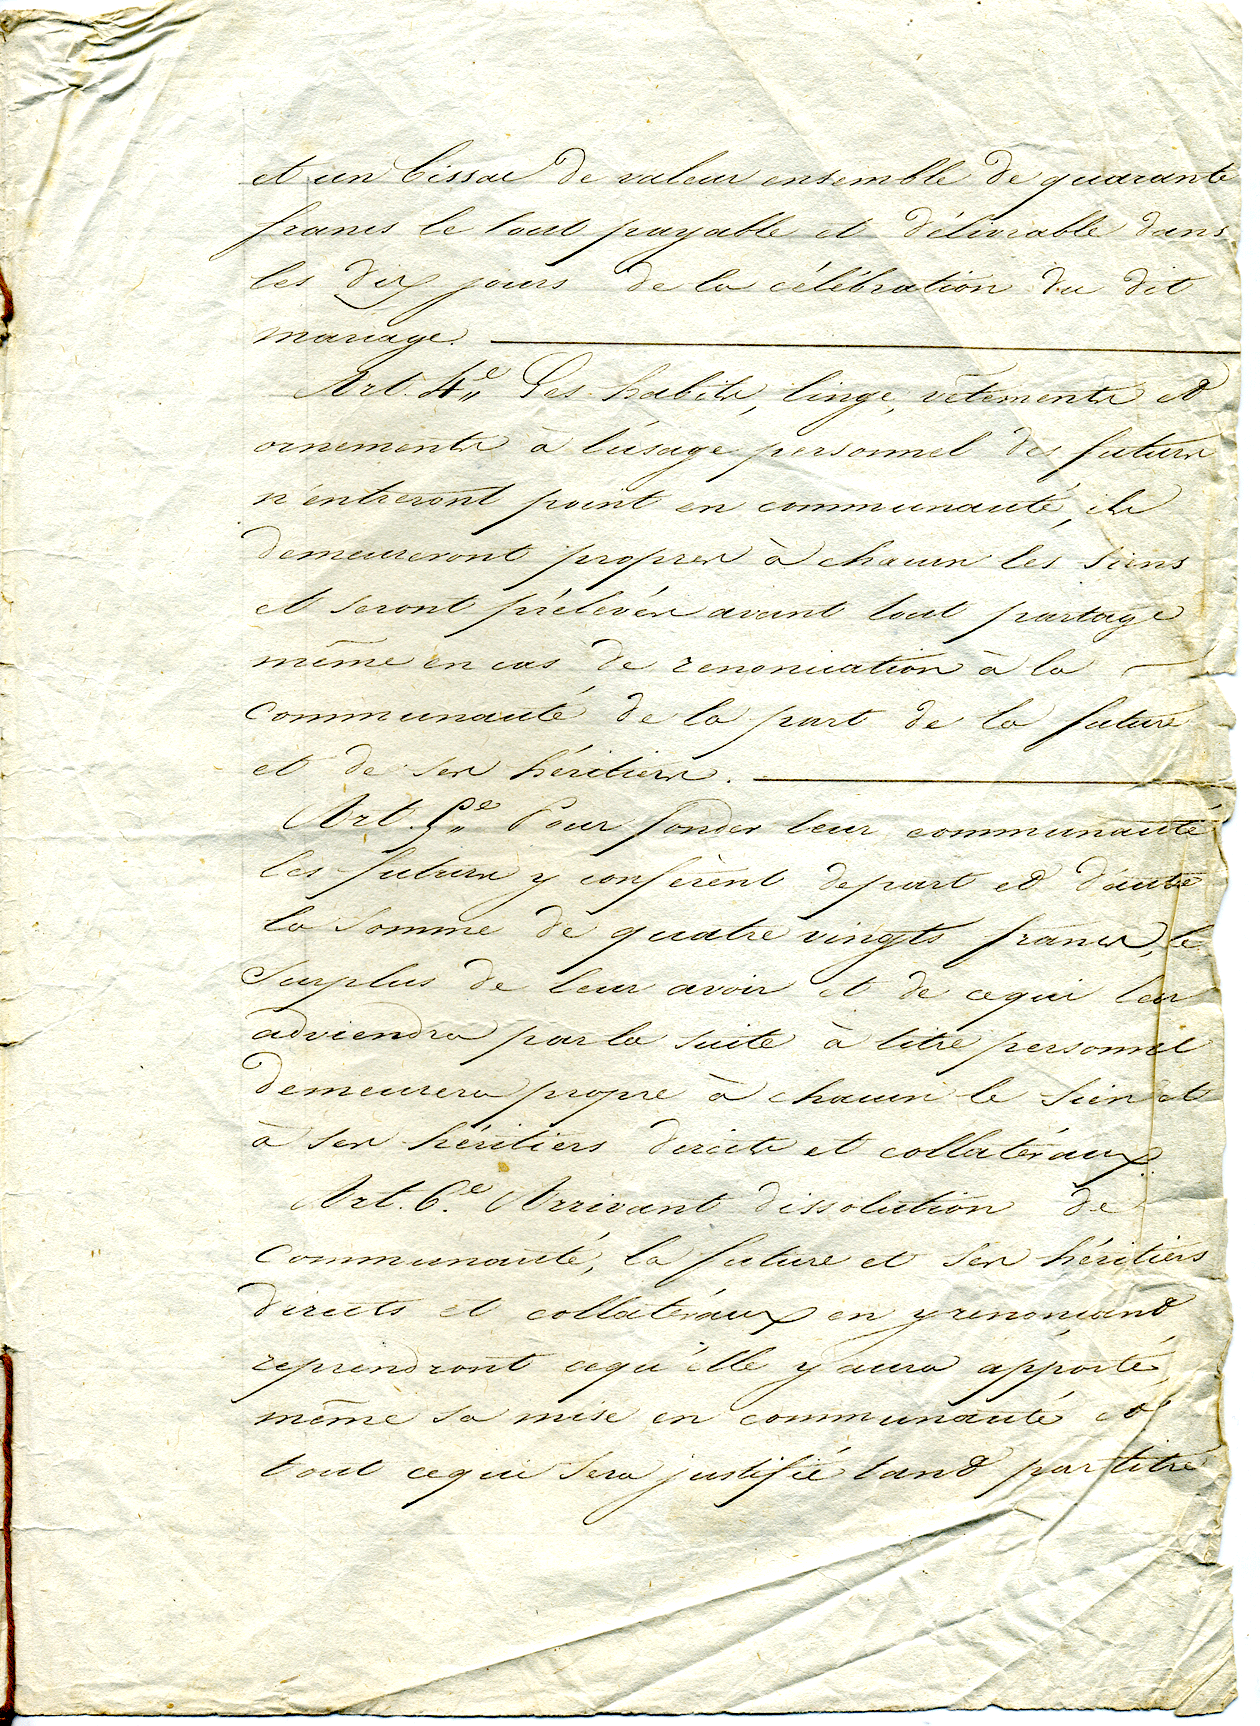 et un bissac de valeur ensemble de quarante
francs le tout payable et délivrable dans
les dix jours de la célébration du dit
mariage.
Art. 4.e Les habits, linge, vêtements et
ornements à l'usage personnel des futurs
n'entreront point en communauté, ils
demeureront propres à chacun les siens
et seront prélevés avant tout partage
même en cas de renonciation à la
communauté de la part de la future
et de ses héritiers.
Art. 5.e Pour fonder leur communauté
les futurs y confèrent de part et d'autre
la somme de quatre vingts francs, le
surplus de leur avoir et de cequi leur
adviendra par la suite à titre personnel
demeurera propre à chacun le sien et
à ses héritiers directs et collatéraux
Art. 6.e Arrivant dissolution de
communauté, la future et ses héritiers
directs et collatéraux en y renonçant
reprendront cequ'elle y aura apporté
même sa mise en communauté et
tout cequi sera justifié tant par titre